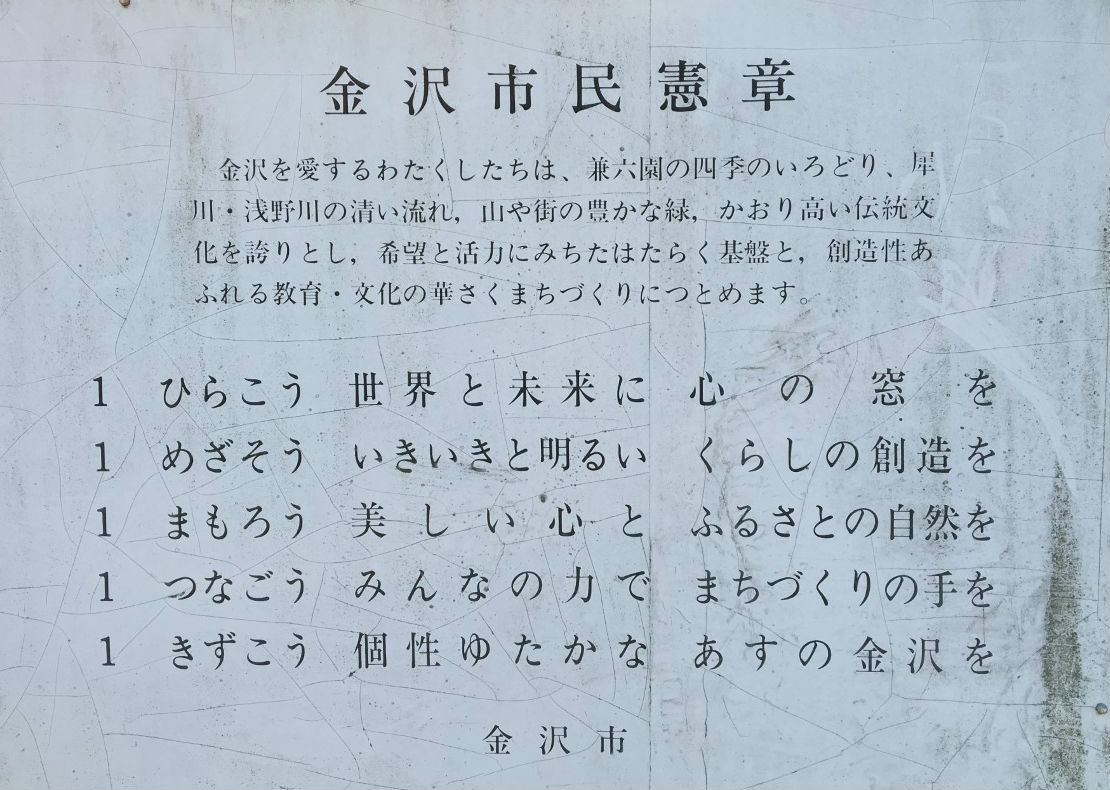 金沢市民憲章
金沢を愛するわたくしたちは、兼六園の四季のいろどり、犀
川・浅野川の清い流れ，山や街の豊かな緑，かおり高い伝統文
化を誇りとし，希望と活力にみちたはたらく基盤と，創造性あ
ふれる教育・文化の華さくまちづくりにつとめます。
1 ひらこう 世界と未来に 心の窓を
1 めざそう いきいきと明るい くらしの創造を
1 まもろう 美しい心と ふるさとの自然を
1 つなごう みんなの力で まちづくりの手を
1 きずこう 個性ゆたかな あすの金沢を
金沢市